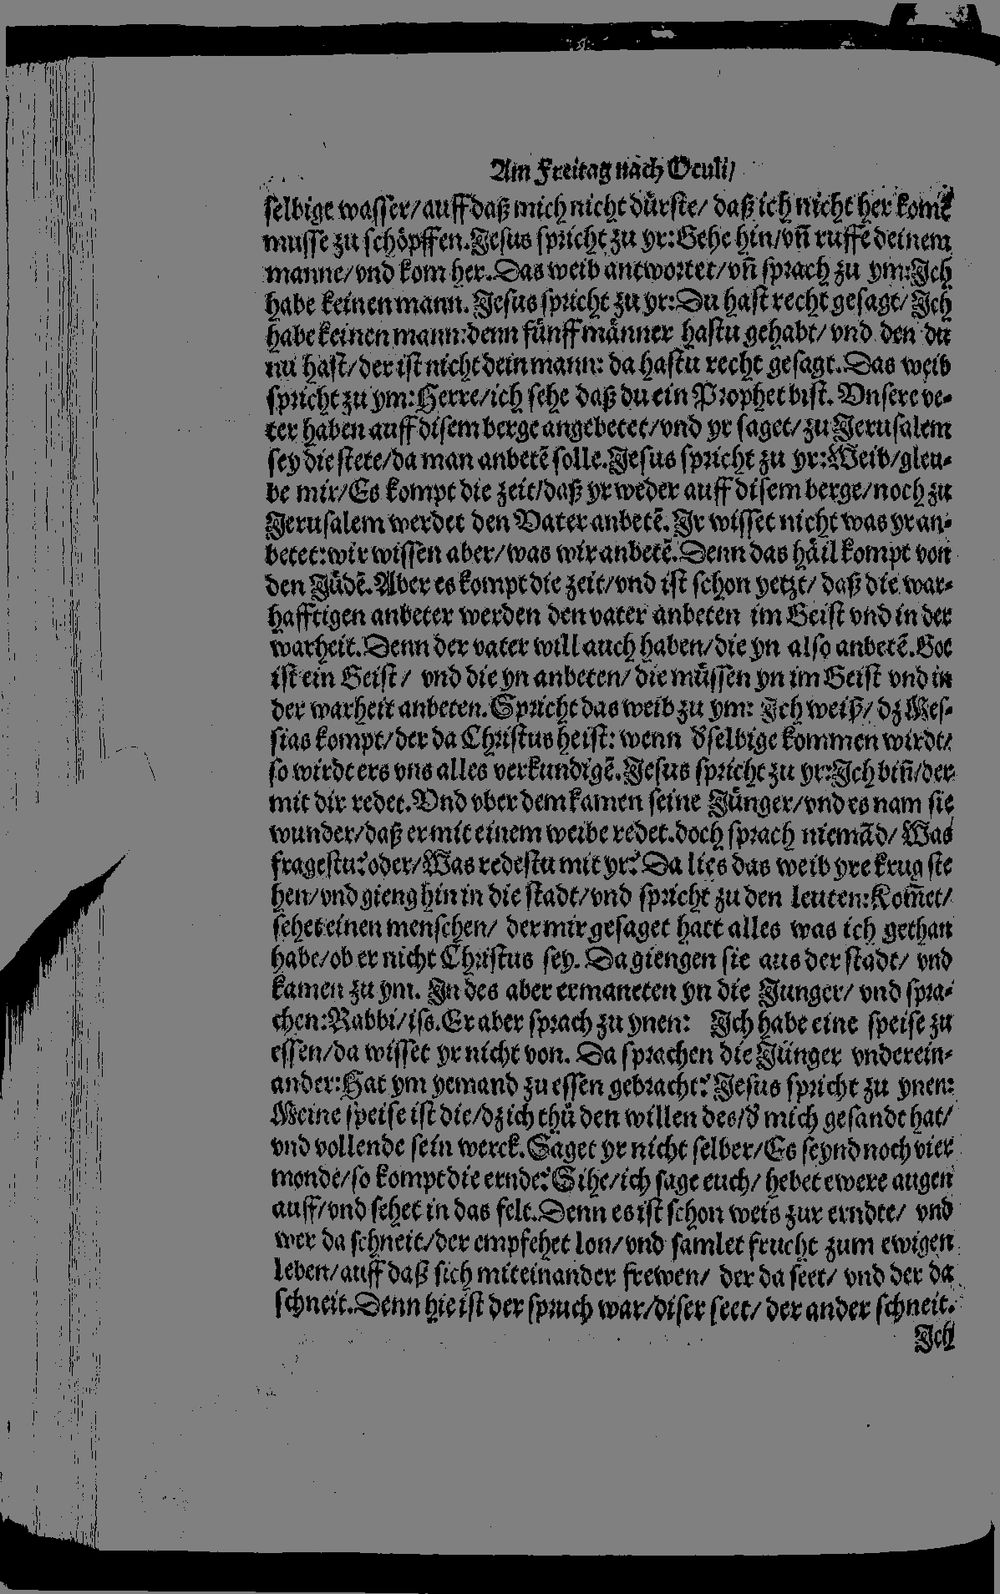 Am Freitag nach Oculi/
selbige wasser/auff daß mich nicht dürste/ daß ich nicht her kome
musse zu schöpffen. Jesus spricht zu yr: Gehe hin/vñ ruffe deinem
manne/vnd kom her. Das weib antwortet/vñ sprach zu ym: Ich
habe keinen mann. Jesus spricht zu yr: Du hast recht gesagt/ Ich
habe keinen mann: denn fünff männer hastu gehabt/ vnd den du
nu hast/der ist nicht dein mann: da hastu recht gesagt. Das weib
spricht zu ym: Herre/ich sehe daß du ein Prophet bist. Vnsere ve-
ter haben auff disem berge angebetet/vnd yr saget/ zu Jerusalem
sey die stete/da man anbetē solle. Jesus spricht zu yr: Weib/gleu-
be mir/Es kompt die zeit/daß yr weder auff disem berge/noch zu
Jerusalem werdet den Vater anbetē. Ir wisset nicht was yr an-
betet: wir wissen aber/was wir anbetē. Denn das häil kompt von
den Jüdē. Aber es kompt die zeit/vnd ist schon yetzt/ daß die war-
hafftigen anbeter werden den vater anbeten im Geist vnd in der
warheit. Denn der vater will auch haben/die yn also anbetē. Got
ist ein Geist/ vnd die yn anbeten/ die müssen yn im Geist vnd in
der warheit anbeten. Spricht das weib zu ym: Ich weiß/ dz Mes-
sias kompt/der da Christus heist: wenn d̄selbige kommen wirdt/
so wirdt ers vns alles verkundigē. Jesus spricht zu yr: Ich biñ/der
mit dir redet. Vnd vber dem kamen seine Jünger/vnd es nam sie
wunder/daß er mit einem weibe redet. doch sprach niemād/ Was
fragestu? oder/Was redestu mit yr? Da lies das weib yre krug ste
hen/vnd gieng hin in die stadt/vnd spricht zu den leuten: Kom̄et/
sehet einen menschen/ der mir gesaget hatt alles was ich gethan
habe/ob er nicht Christus sey. Da giengen sie aus der stadt/ vnd
kamen zu ym. In des aber ermaneten yn die Junger/ vnd spra-
chen: Rabbi/iss. Er aber sprach zu ynen: Ich habe eine speise zu
essen/da wisset yr nicht von. Da sprachen die Jünger vnderein-
ander: Hat ym yemand zu essen gebracht? Jesus spricht zu ynen:
Meine speise ist die/dz ich thü den willen des/d̄ mich gesandt hat/
vnd vollende sein werck. Saget yr nicht selber/Es seynd noch vier
monde/so kompt die ernde? Sihe/ich sage euch/ hebet ewere augen
auff/vnd sehet in das felt. Denn es ist schon weis zur erndte/ vnd
wer da schneit/der empfehet lon/vnd samlet frucht zum ewigen
leben/auff daß sich miteinander frewen/ der da seet/ vnd der da
schneit. Denn hie ist der spruch war/diser seet/ der ander schneit.
Ich